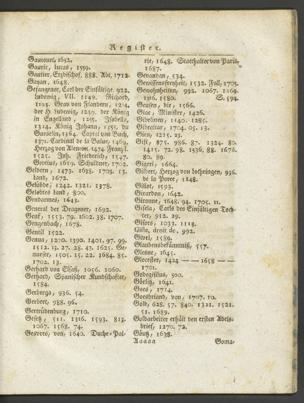 Register.
Gautourt, 1652.
Gauric, lucas, 1559.
Gautier, Erzbischof, 888. Abt, 1712.
Gayan, 1648.
Gefangene, Carl der Einfältige, 922.
ludewig, VII. 1149. Richard,
1193. Graf von Flandern, 1214.
der H. ludewig, 1249. der König
in Engelland, 1265.
1314. König Johann, 1351. du
Guesclin, 1364. Captal von Buch,
1371. Cardinal de la Balue, 1469.
Herzog von Nemour, 1474. Franz I.
1525. Joh. Friederich, 1547.
Gordus, 1619. Schultner, 1702.
Geldern, 1473. 1638. 1709. 13.
land, 1672.
Gelübde, 1244. 1321. 1378.
Gelobtes land, 800.
Gendarmes, 1643.
General der Dragoner, 1692.
Genf, 1553. 79. 1602. 38. 1707.
Gengenbach, 1678.
Gentil 1522.
Genua, 1270. 1390. 1401. 97. 99.
1512. 13. 27. 28. 47. 1625. Ge-
mueser, 1505. 15. 22. 1684. 85.
1702. 13.
Gerhard von Elsaß, 1056. 1060.
Gerhard, Spanischer Kundschafter,
1584.
Gerberga, 936. 54.
Gerbert, 988. 96.
Gertrudenburg, 1710.
Gesetz, 511. 1316. 1593. 813.
1067. 1568. 74.
Gesvres, von, 1640. Duche-Pai-
rie, 1648. Statthalter von Paris,
1687.
Gevaudan, 534.
Gewissensfreyheit, 1532. Fall, 1705.
Gewohnheiten, 992. 1067. 1169.
1316. 1580. S. 594.
Geusen, die, 1566.
Giac, Minister, 1426.
Gibelinen, 1140. 1285.
Gibraltar, 1704. 05. 13.
Gien, 1215. 23.
Gift, 875. 986. 87. 1324. 80.
1415. 72. 98. 1536. 88. 1676.
80. 89.
Gigeri, 1664.
Gilbert, Herzog von lothringen, 936.
de la Porce, 1148.
Gillot, 1593.
Girardon, 1642.
Gironne, 1648. 94. 1705. 11.
Gisela, Carls des Einfältigen Toch-
ter, 912. 29.
Gisors, 1033. 1118.
Giste, droit de, 992.
Givet, 1589.
Glaubensbekänntniß, 557.
Gleine, 1645.
Glocester, 1424 — — 1658 — —
1701.
Godegisilus, 500.
Göslis, 1641.
Goes, 1714.
Goesbriand, von, 1707. 10.
Gold, 628. 57. 840. 1321. 1521.
51. 1639.
Goldarbeiter erhält den ersten Adels-
brief, 1270. 72.
Aaaaa Goma-